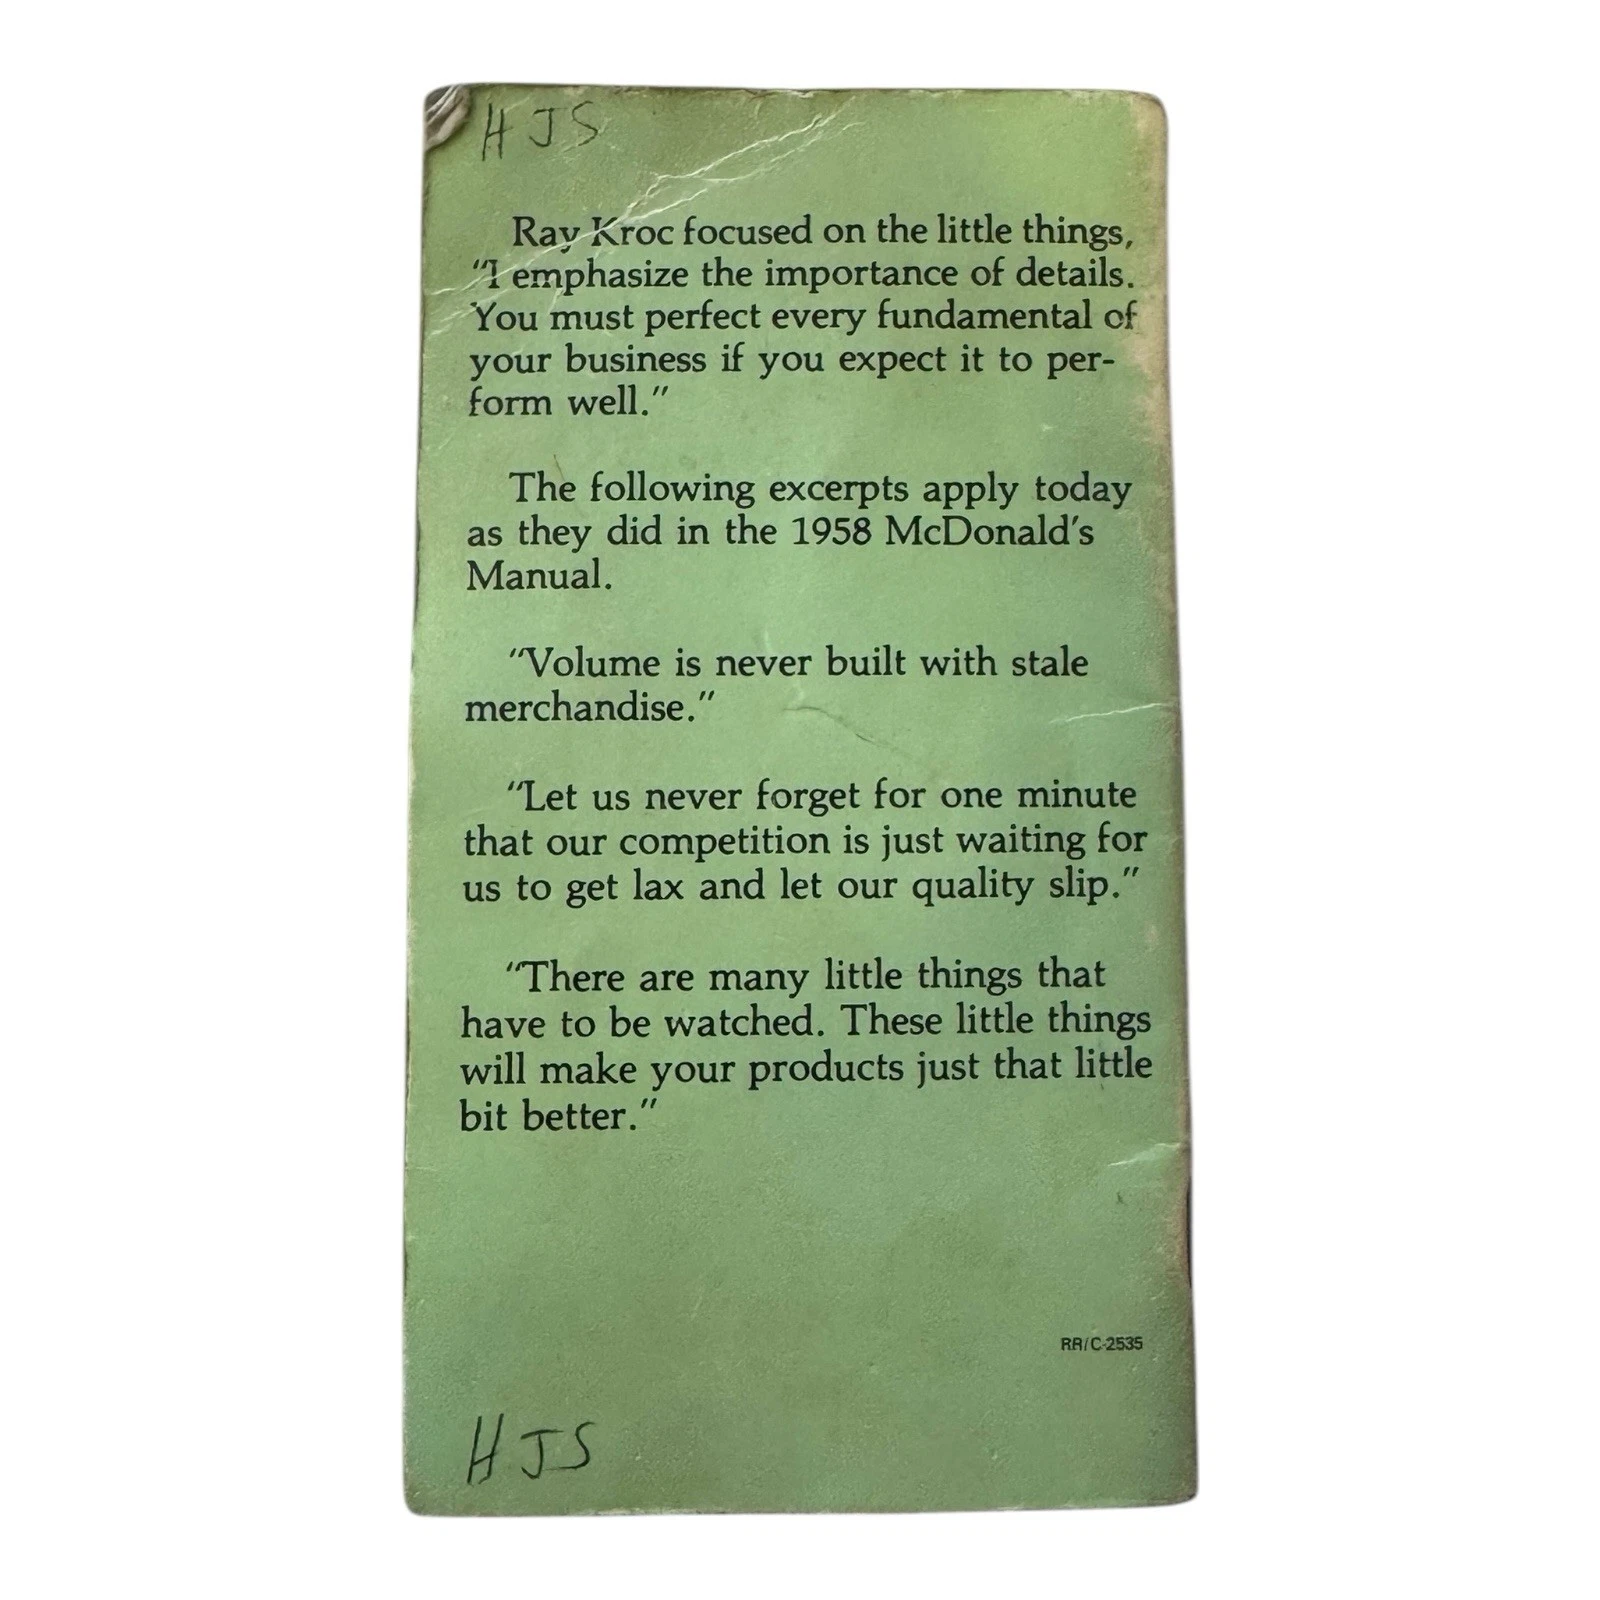 HJS
Ray Kroc focused on the little things,
"I emphasize the importance of details.
You must perfect every fundamental of
your business if you expect it to per-
form well."
The following excerpts apply today
as they did in the 1958 McDonald's
Manual.
"Volume is never built with stale
merchandise."
"Let us never forget for one minute
that our competition is just waiting for
us to get lax and let our quality slip."
"There are many little things that
have to be watched. These little things
will make your products just that little
bit better."
RR/C-2535
HJS